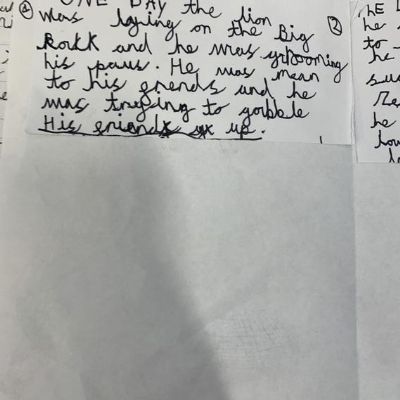 ONE DAY the lion
was lying on the Big
Rokk and he was grooming
his paws. He was mean
to his friends and he
was trying to gobble
His friends up.
2
he
to
he
he